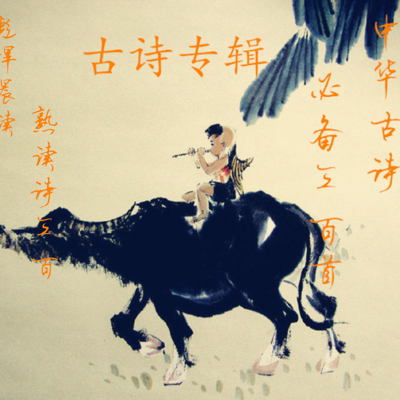 古诗专辑
中华古诗
必备三百首
熟读诗三百
晨读